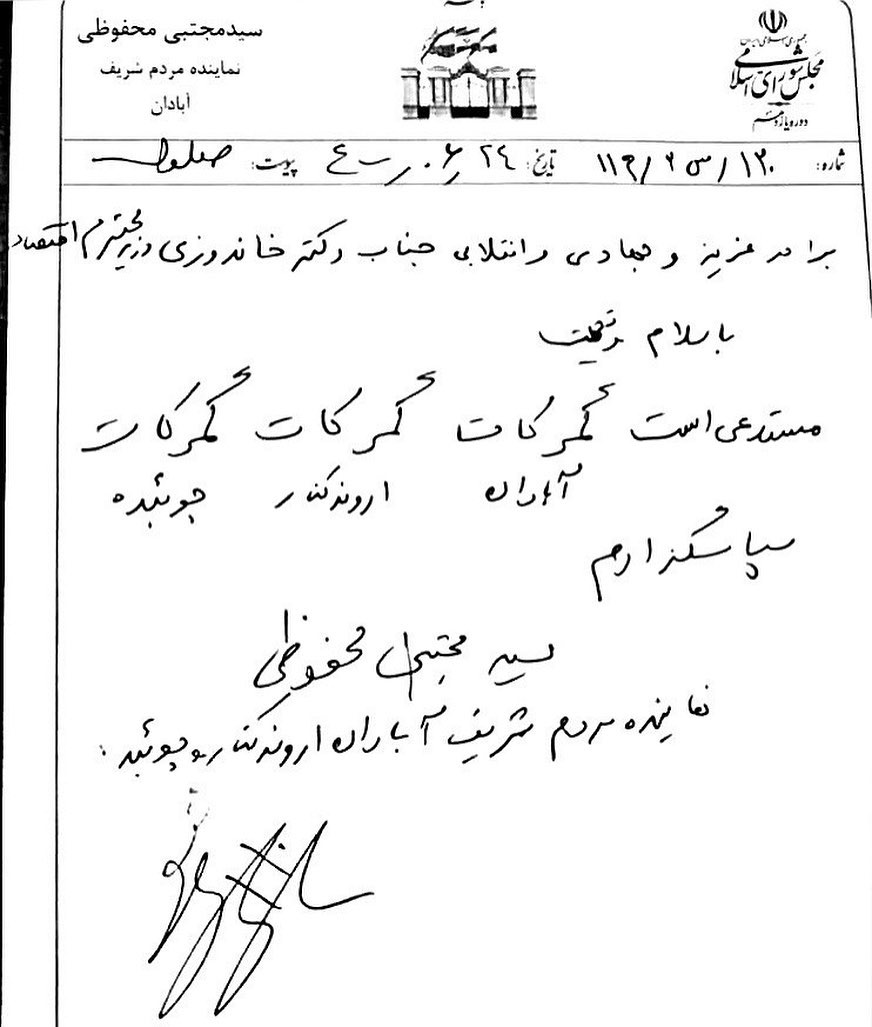 سیدمجتبی محفوظی
نماینده مردم شریف
آبادان
جمهوری اسلامی ایران
مجلس شورای اسلامی
دوره یازدهم
شماره: ۱۱۹/۲س/۱۳۰ تاریخ: ۲۴ پیوت:
برادر عزیز و جهادی و انقلابی جناب دکتر خاندوزی وزیر محترم اقتصاد
باسلام
مستدعی است گمرکات گمرکات گمرکات
آبادان اروندکنار چوئبده
سپاسگزارم
سید مجتبی محفوظی
نماینده مردم شریف آبادان اروندکنار و چوئبده